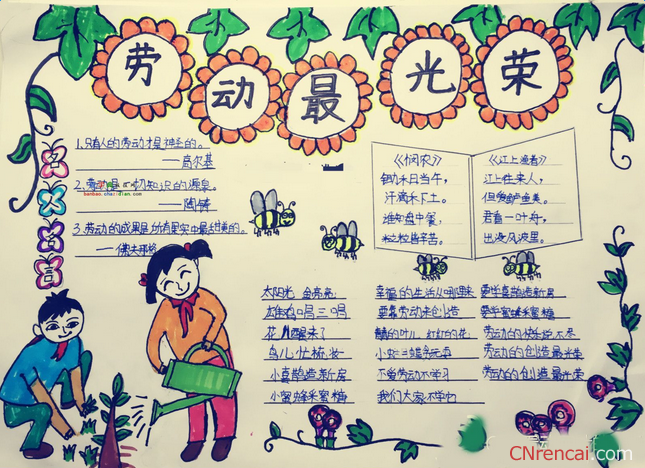 劳动最光荣
名人名言
1.只有人的劳动才是神圣的。
——高尔基
2.劳动是一切知识的源泉。
——陶铸
banbao.chazidian.com
3.劳动的成果是所有果实中最甜美的。
《悯农》
锄禾日当午，
汗滴禾下土。
谁知盘中餐，
粒粒皆辛苦。
《江上渔者》
江上往来人，
但爱鲈鱼美。
君看一叶舟，
出没风波里。
太阳光 金亮亮
雄鸡唱三唱
花儿醒来了
鸟儿忙梳妆
小喜鹊造新房
小蜜蜂采蜜糖
幸福的生活从哪里来
要靠劳动来创造
青青的叶儿 红红的花
小蝴蝶贪玩耍
不爱劳动不学习
我们大家不学它
要学喜鹊造新房
要学蜜蜂采蜜糖
劳动的快乐说不尽
劳动的创造最光荣
劳动的创造最光荣
CNrencai.com